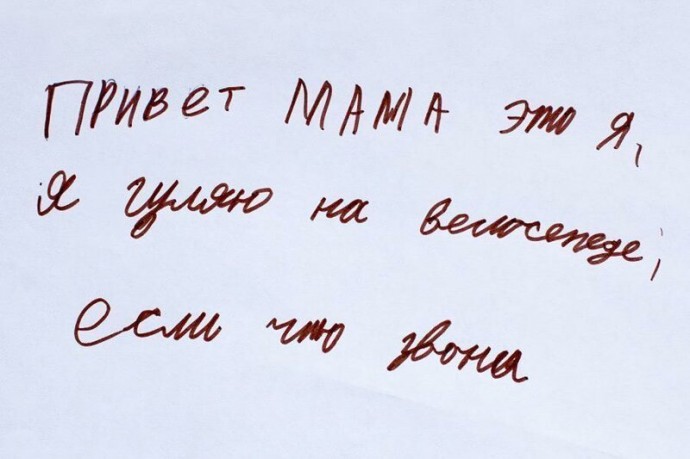 Привет МАМА это я,
я гуляю на велосепеде,
если что звони